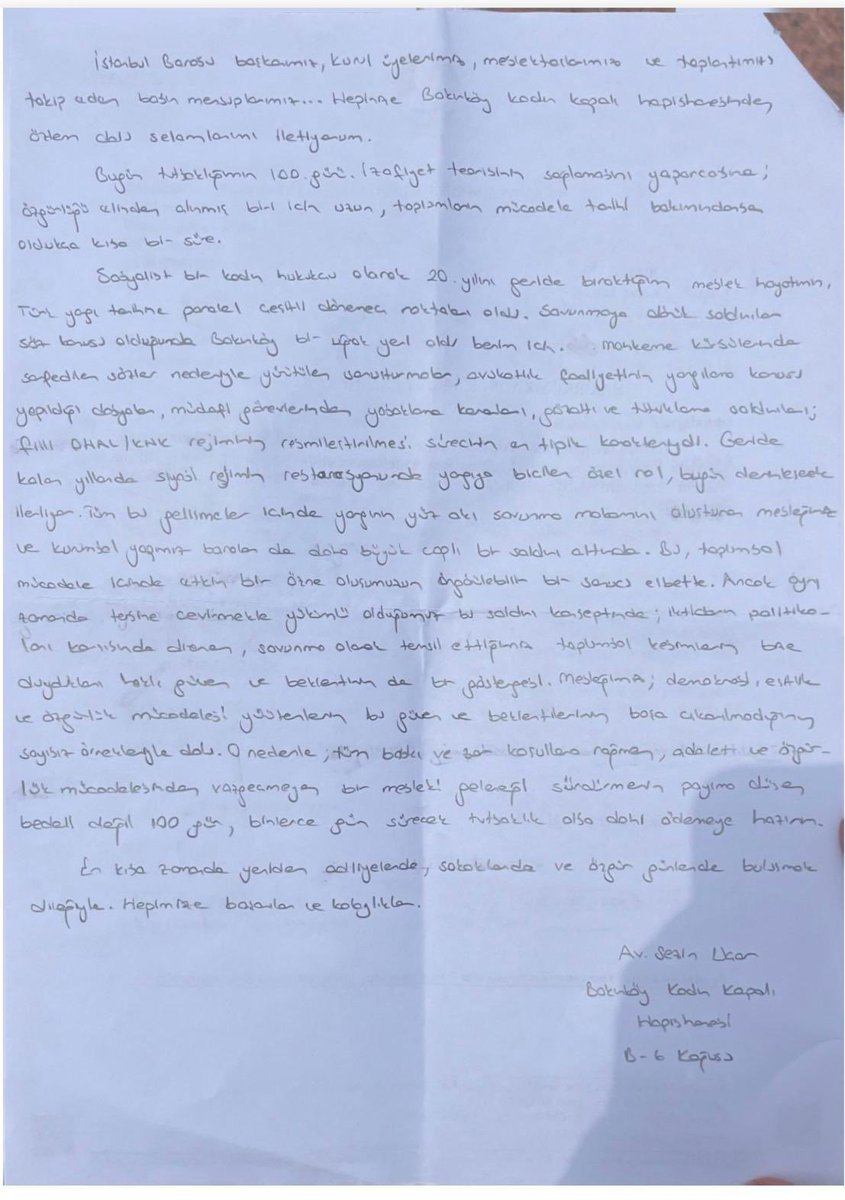 İstanbul Barosu başkanımız, kurul üyelerimiz, meslektaşlarımız ve toplantımızı
takip eden basın mensuplarımız... Hepinize Bakırköy Kadın Kapalı hapishanesinden
özlem dolu selamlarımı iletiyorum.
Bugün tutsaklığımın 100. günü. İzafiyet teorisinin sağlamasını yaparcasına;
özgürlüğü elinden alınmış biri için uzun, toplumların mücadele tarihi bakımındansa
oldukça kısa bir süre.
Sosyalist bir kadın hukukçu olarak 20. yılını geride bıraktığım meslek hayatımın,
Türk yargı tarihine paralel çeşitli dönemeç noktaları oldu. Savunmaya dönük saldırılar
söz konusu olduğunda Bakırköy bir uğrak yeri oldu benim için. mahkeme kürsülerinde
sarfedilen sözler nedeniyle yürütülen soruşturmalar, avukatlık faaliyetinin yargılama konusu
yapıldığı dosyalar, müdafi görevlerinden yasaklama kararları, gözaltı ve tutuklama saldırıları;
fiili OHAL/KHK rejiminin resmileştirilmesi sürecinin en tipik
Geride
kalan yıllarda siyasi rejimin restorasyonunda yargıya biçilen özel rol, bugün derinleşerek
ilerliyor. Tüm bu gelişmeler içinde yargının yüz akı savunma makamını oluşturan mesleğimiz
ve kurumsal yapımız barolar da daha büyük çaplı bir saldırı altında. Bu, toplumsal
mücadele içinde etkin bir özne oluşumuzun öngörülebilir bir sonucu elbette. Ancak aynı
zamanda tersine çevirmekle yükümlü olduğumuz bu saldırı konseptinde; iktidarın politika-
ları karşısında direnen, savunma olarak temsil ettiğimiz toplumsal kesimlerin bize
duydukları haklı güven ve beklentinin de bir göstergesi. Mesleğimiz; demokrasi, eşitlik
ve özgürlük mücadelesi yürütenlerin bu güven ve beklentilerinin boşa çıkarılmadığının
sayısız örnekleriyle dolu. O nedenle; tüm baskı ve zor koşullara rağmen, adalet ve özgür-
lük mücadelesinden vazgeçmeyen bir mesleki geleneği sürdürmenin payıma düşen
bedeli değil 100 gün, binlerce gün sürecek tutsaklık olsa dahi ödemeye hazırım.
En kısa zamanda yeniden adliyelerde, sokaklarda ve özgür günlerde buluşmak
dileğiyle. Hepimize başarılar ve kolaylıklar.
Av. Sezin Uçar
Bakırköy Kadın Kapalı
Hapishanesi
B-6 Koğuşu